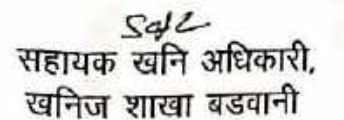 सहायक खनि अधिकारी,
खनिज शाखा बडवानी